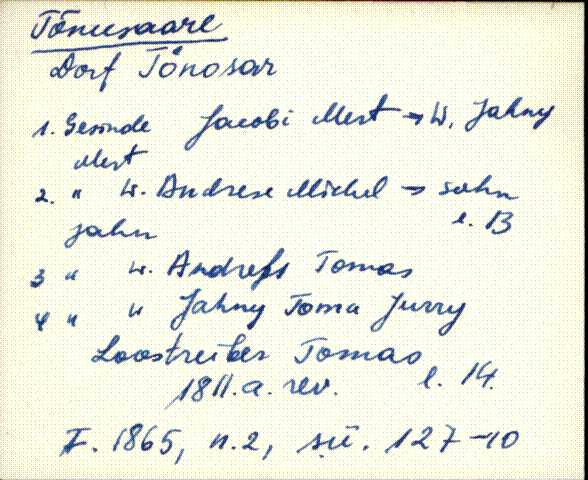 Tõnusaare
Dorf Tõnosar
1. Gesinde Jacobi Mert → W. Jahny
Mert
2. " W. Andrese Michel → sohn
l. 13
Jahn
3 " W. Andress Tomas
4 " " Jahny Toma Jurry
Loostreiber Tomas
1811.a. rev. l. 14.
F. 1865, n.2, sü. 127-10